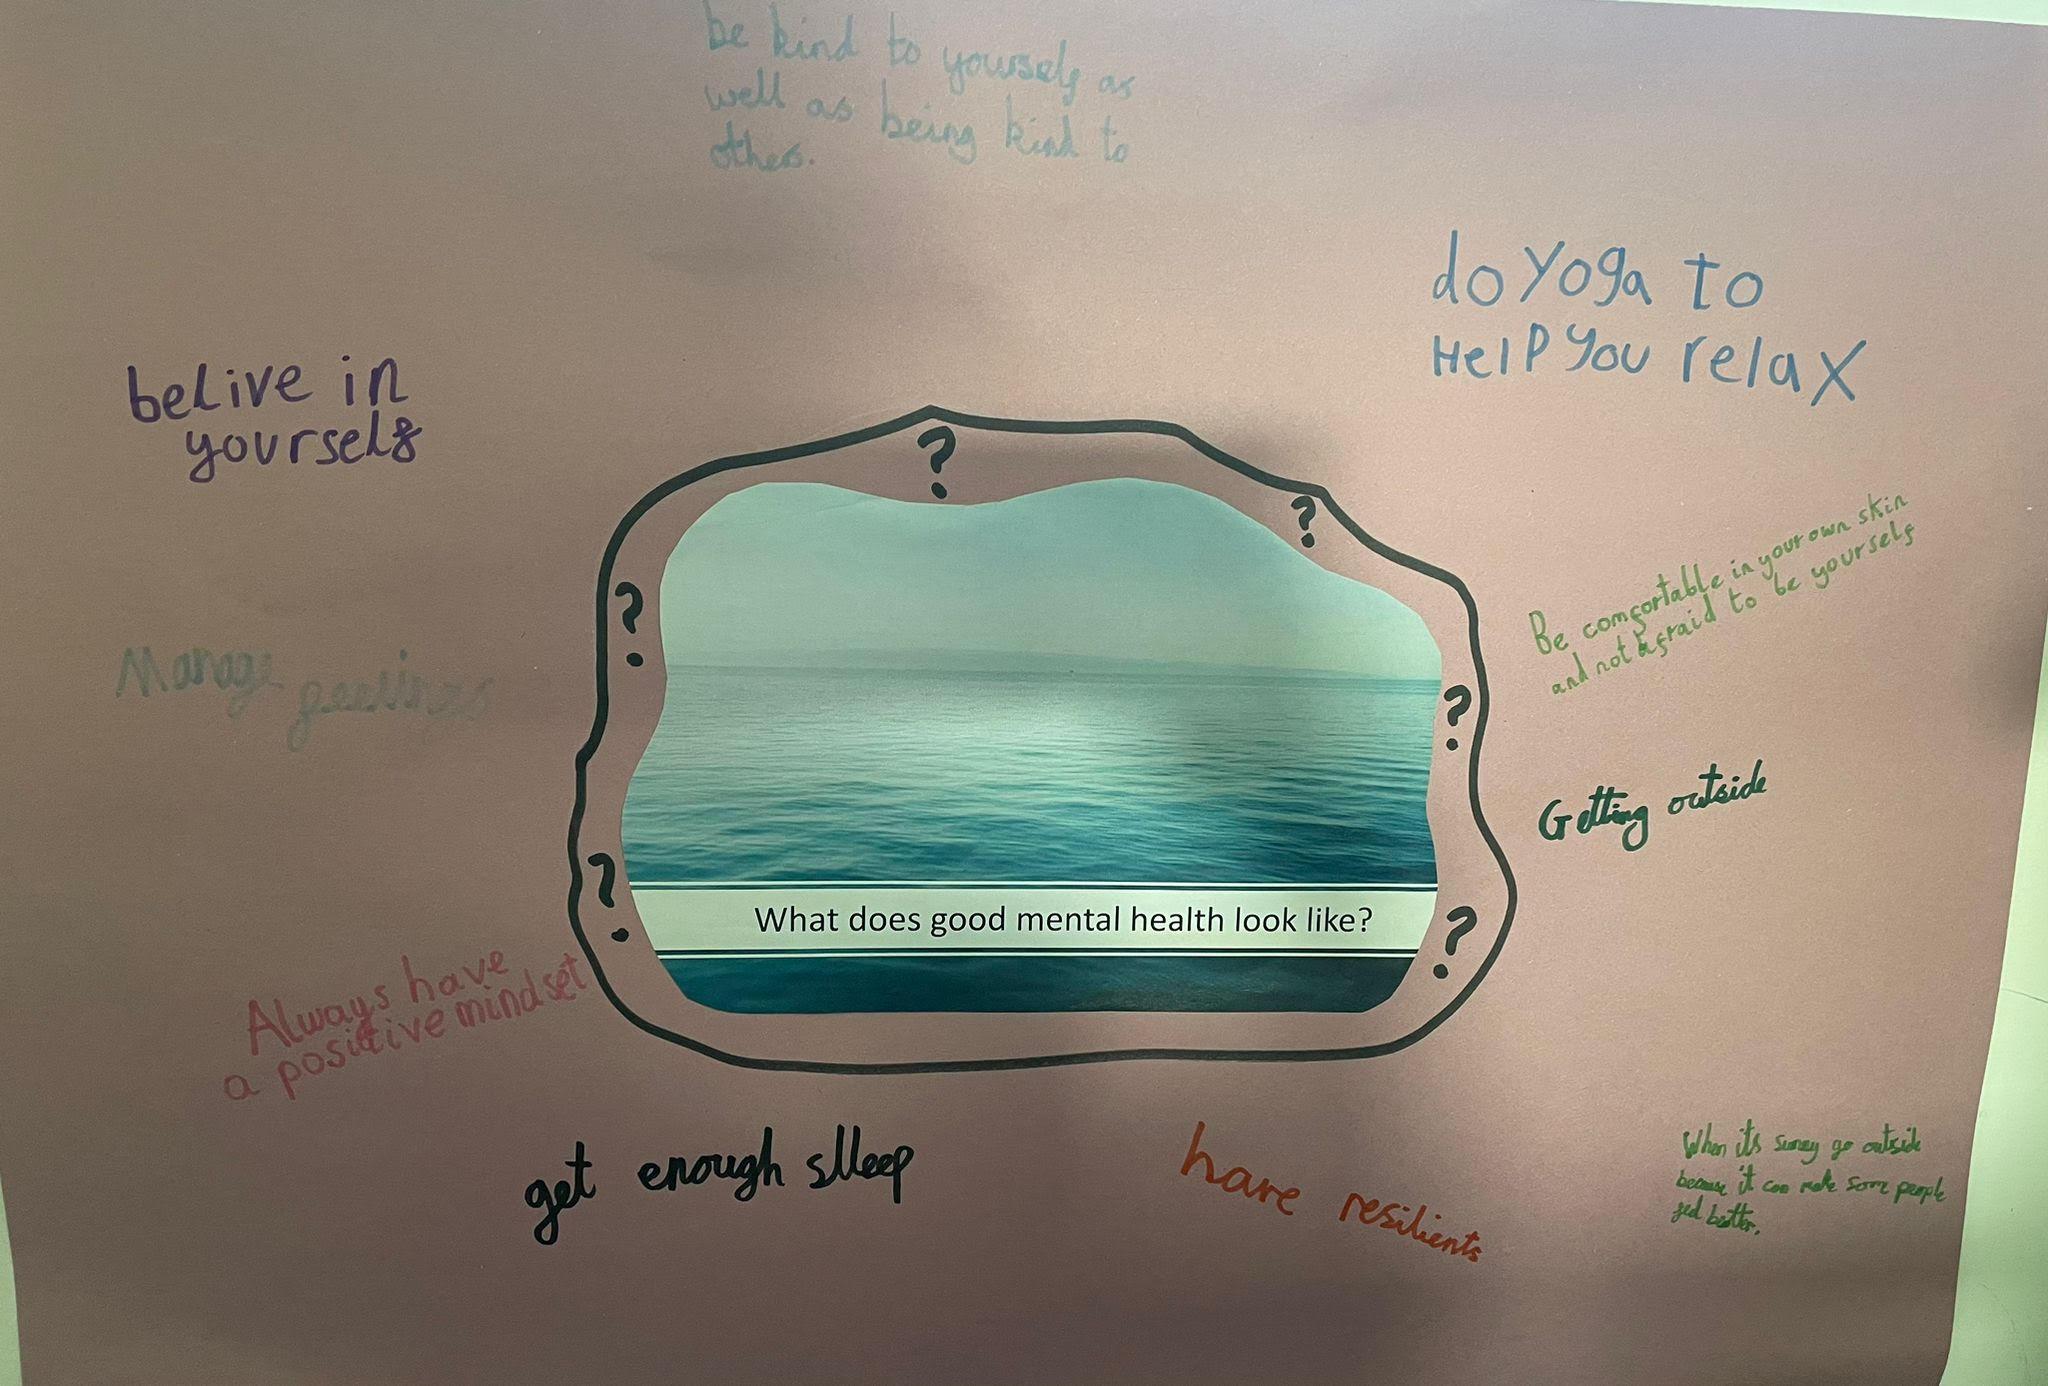 be kind to yourself as
well as being kind to
others.
do Yoga to
HelP You relax
beLive in
yourself
Be comfortable in your own skin
and not afraid to be yourself
Manage feelings
Getting outside
?
?
?
?
?
?
What does good mental health look like?
Always have
a positive mindset
get enough slleep
have resilients
When it's sunny go outside
because it can make some people
feel better.